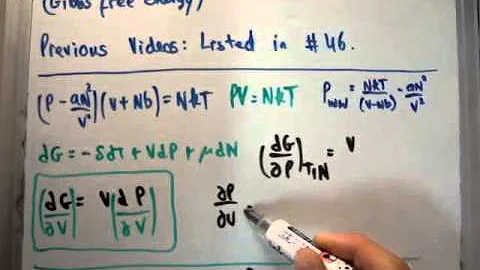 (Gibbs free energy)
Previous Videos: Listed in #46.
(P - aN²/V²)(V + Nb) = NkT PV = NkT P_WW = NkT/(V-Nb) - aN²/V²
dG = -SdT + VdP + μdN (∂G/∂P)_T,N = V
(∂G/∂V) = V(∂P/∂V) ∂P/∂V